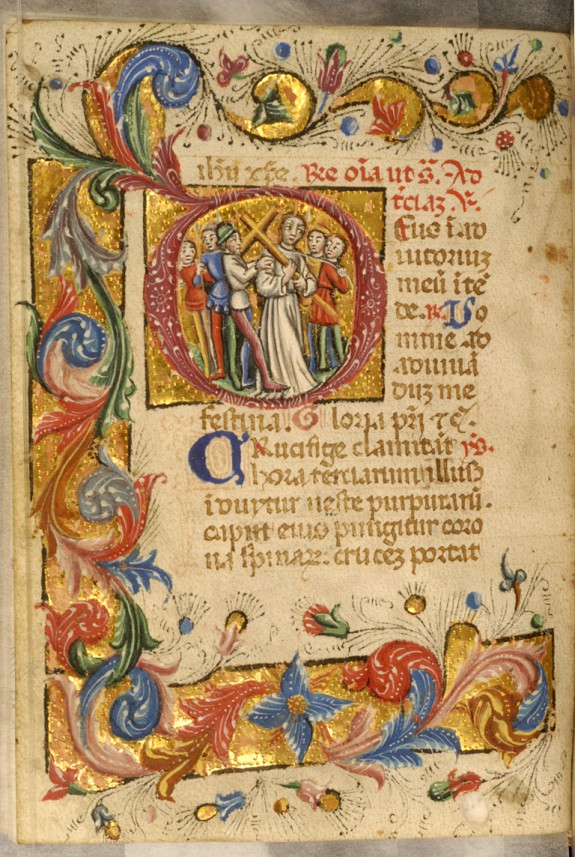 ihu xpe. Re oia ut s. Ad
tciaz V.
Eus i ad
iutoriuz
meu ite
de. R. Do
mine ad
adiuua
duz me
festina. Gloria pri. et c.
CRucifige clamitat
hora terciarum illus
iduytur ueste purpuraru.
caput eius pungitur coro
na spinaz. crucez portat